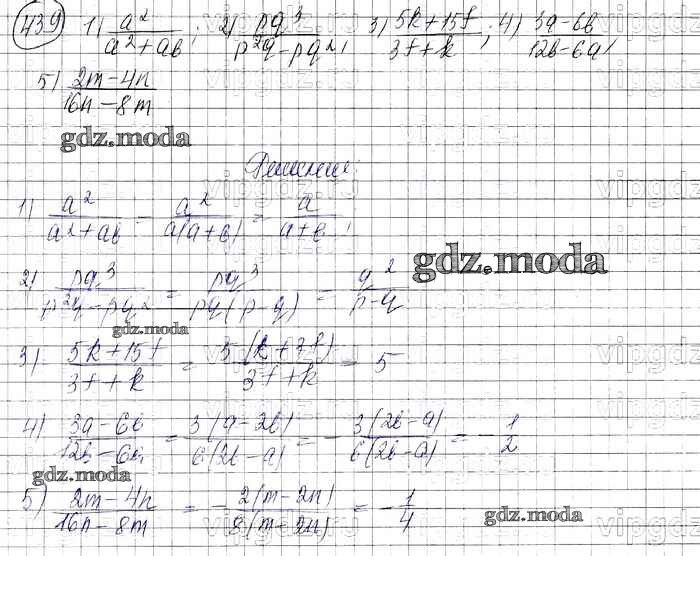 439 1) a²/(a²+ab); 2) pq³/(p²q-pq²); 3) (5k+15f)/(3f+k); 4) (3a-6b)/(12b-6a);
5) (2m-4n)/(16n-8m)
gdz.moda
Решение:
1) a²/(a²+ab) = a²/(a(a+b)) = a/(a+b);
gdz.moda
2) pq³/(p²q-pq²) = pq³/(pq(p-q)) = q²/(p-q)
gdz.moda
3) (5k+15f)/(3f+k) = 5(k+3f)/(3f+k) = 5
4) (3a-6b)/(12b-6a) = 3(a-2b)/(6(2b-a)) = -3(2b-a)/(6(2b-a)) = -1/2
gdz.moda
5) (2m-4n)/(16n-8m) = -2(m-2n)/(8(m-2n)) = -1/4
gdz.moda